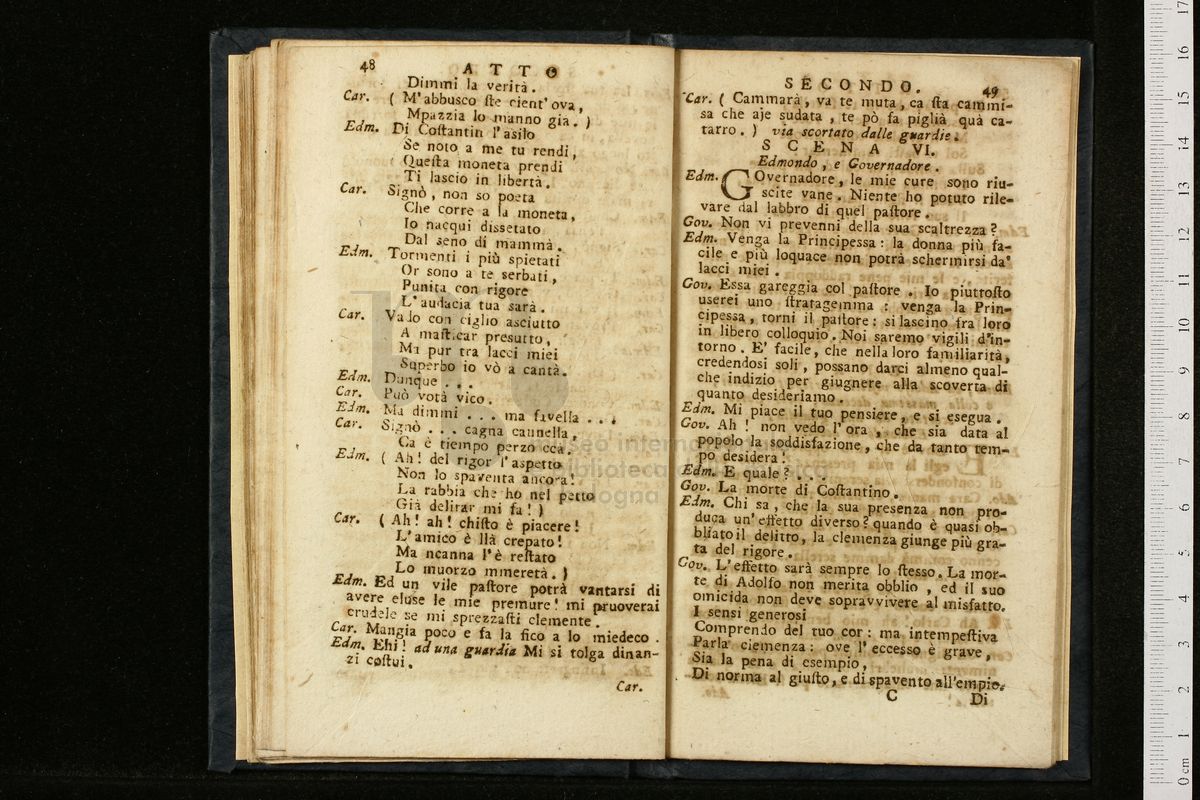 48
A T T O
Dimmi la verità.
Car. ( M'abbusco ste cient'ova,
Mpazzia lo manno gia. )
Edm. Di Costantin l'asilo
Se noto a me tu rendi,
Questa moneta prendi
Ti lascio in libertà.
Car. Signò, non so poeta
Che corre a la moneta,
Io nacqui dissetato
Dal seno di mammà.
Edm. Tormenti i più spietati
Or sono a te serbati,
Punita con rigore
L'audacia tua sarà.
Car. Vado con ciglio asciutto
A masticar presutto,
Ma pur tra lacci miei
Superbo io vò a cantà.
Edm. Dunque . . .
Car. Può votà vico.
Edm. Ma dimmi . . . ma favella . . .
Car. Signò . . . cagna cannella,
Ca è tiempo perzo cca.
Edm. ( Ah! del rigor l'aspetto
Non lo spaventa ancora!
La rabbia che ho nel petto
Già delirar mi fa! )
Car. ( Ah! ah! chisto è piacere!
L'amico è llà crepato!
Ma ncanna l'è restato
Lo muorzo mmeretà. )
Edm. Ed un vile pastore potrà vantarsi di
avere eluse le mie premure! mi pruoverai
crudele se mi sprezzasti clemente.
Car. Mangia poco e fa la fico a lo miedeco.
Edm. Ehi! ad una guardia Mi si tolga dinan-
zi costui.
Car.
SECONDO.
49
Car. ( Cammarà, va te muta, ca sta cammi-
sa che aje sudata, te pò fa piglià quà ca-
tarro. ) via scortato dalle guardie.
S C E N A VI.
Edmondo, e Governadore.
Edm. GOvernadore, le mie cure sono riu-
scite vane. Niente ho potuto rile-
vare dal labbro di quel pastore.
Gov. Non vi prevenni della sua scaltrezza?
Edm. Venga la Principessa: la donna più fa-
cile e più loquace non potrà schermirsi da'
lacci miei.
Gov. Essa gareggia col pastore. Io piuttosto
userei uno stratagemma: venga la Prin-
cipessa, torni il pastore: si lascino fra loro
in libero colloquio. Noi saremo vigili d'in-
torno. E' facile, che nella loro familiarità,
credendosi soli, possano darci almeno qual-
che indizio per giugnere alla scoverta di
quanto desideriamo.
Edm. Mi piace il tuo pensiere, e si esegua.
Gov. Ah! non vedo l'ora, che sia data al
popolo la soddisfazione, che da tanto tem-
po desidera!
Edm. E quale? . . .
Gov. La morte di Costantino.
Edm. Chi sa, che la sua presenza non pro-
duca un'effetto diverso? quando è quasi ob-
bliato il delitto, la clemenza giunge più gra-
ta del rigore.
Gov. L'effetto sarà sempre lo stesso. La mor-
te di Adolfo non merita obblio, ed il suo
omicida non deve sopravvivere al misfatto.
I sensi generosi
Comprendo del tuo cor: ma intempestiva
Parla clemenza: ove l'eccesso è grave,
Sia la pena di esempio,
Di norma al giusto, e di spavento all'empio.
C
Di